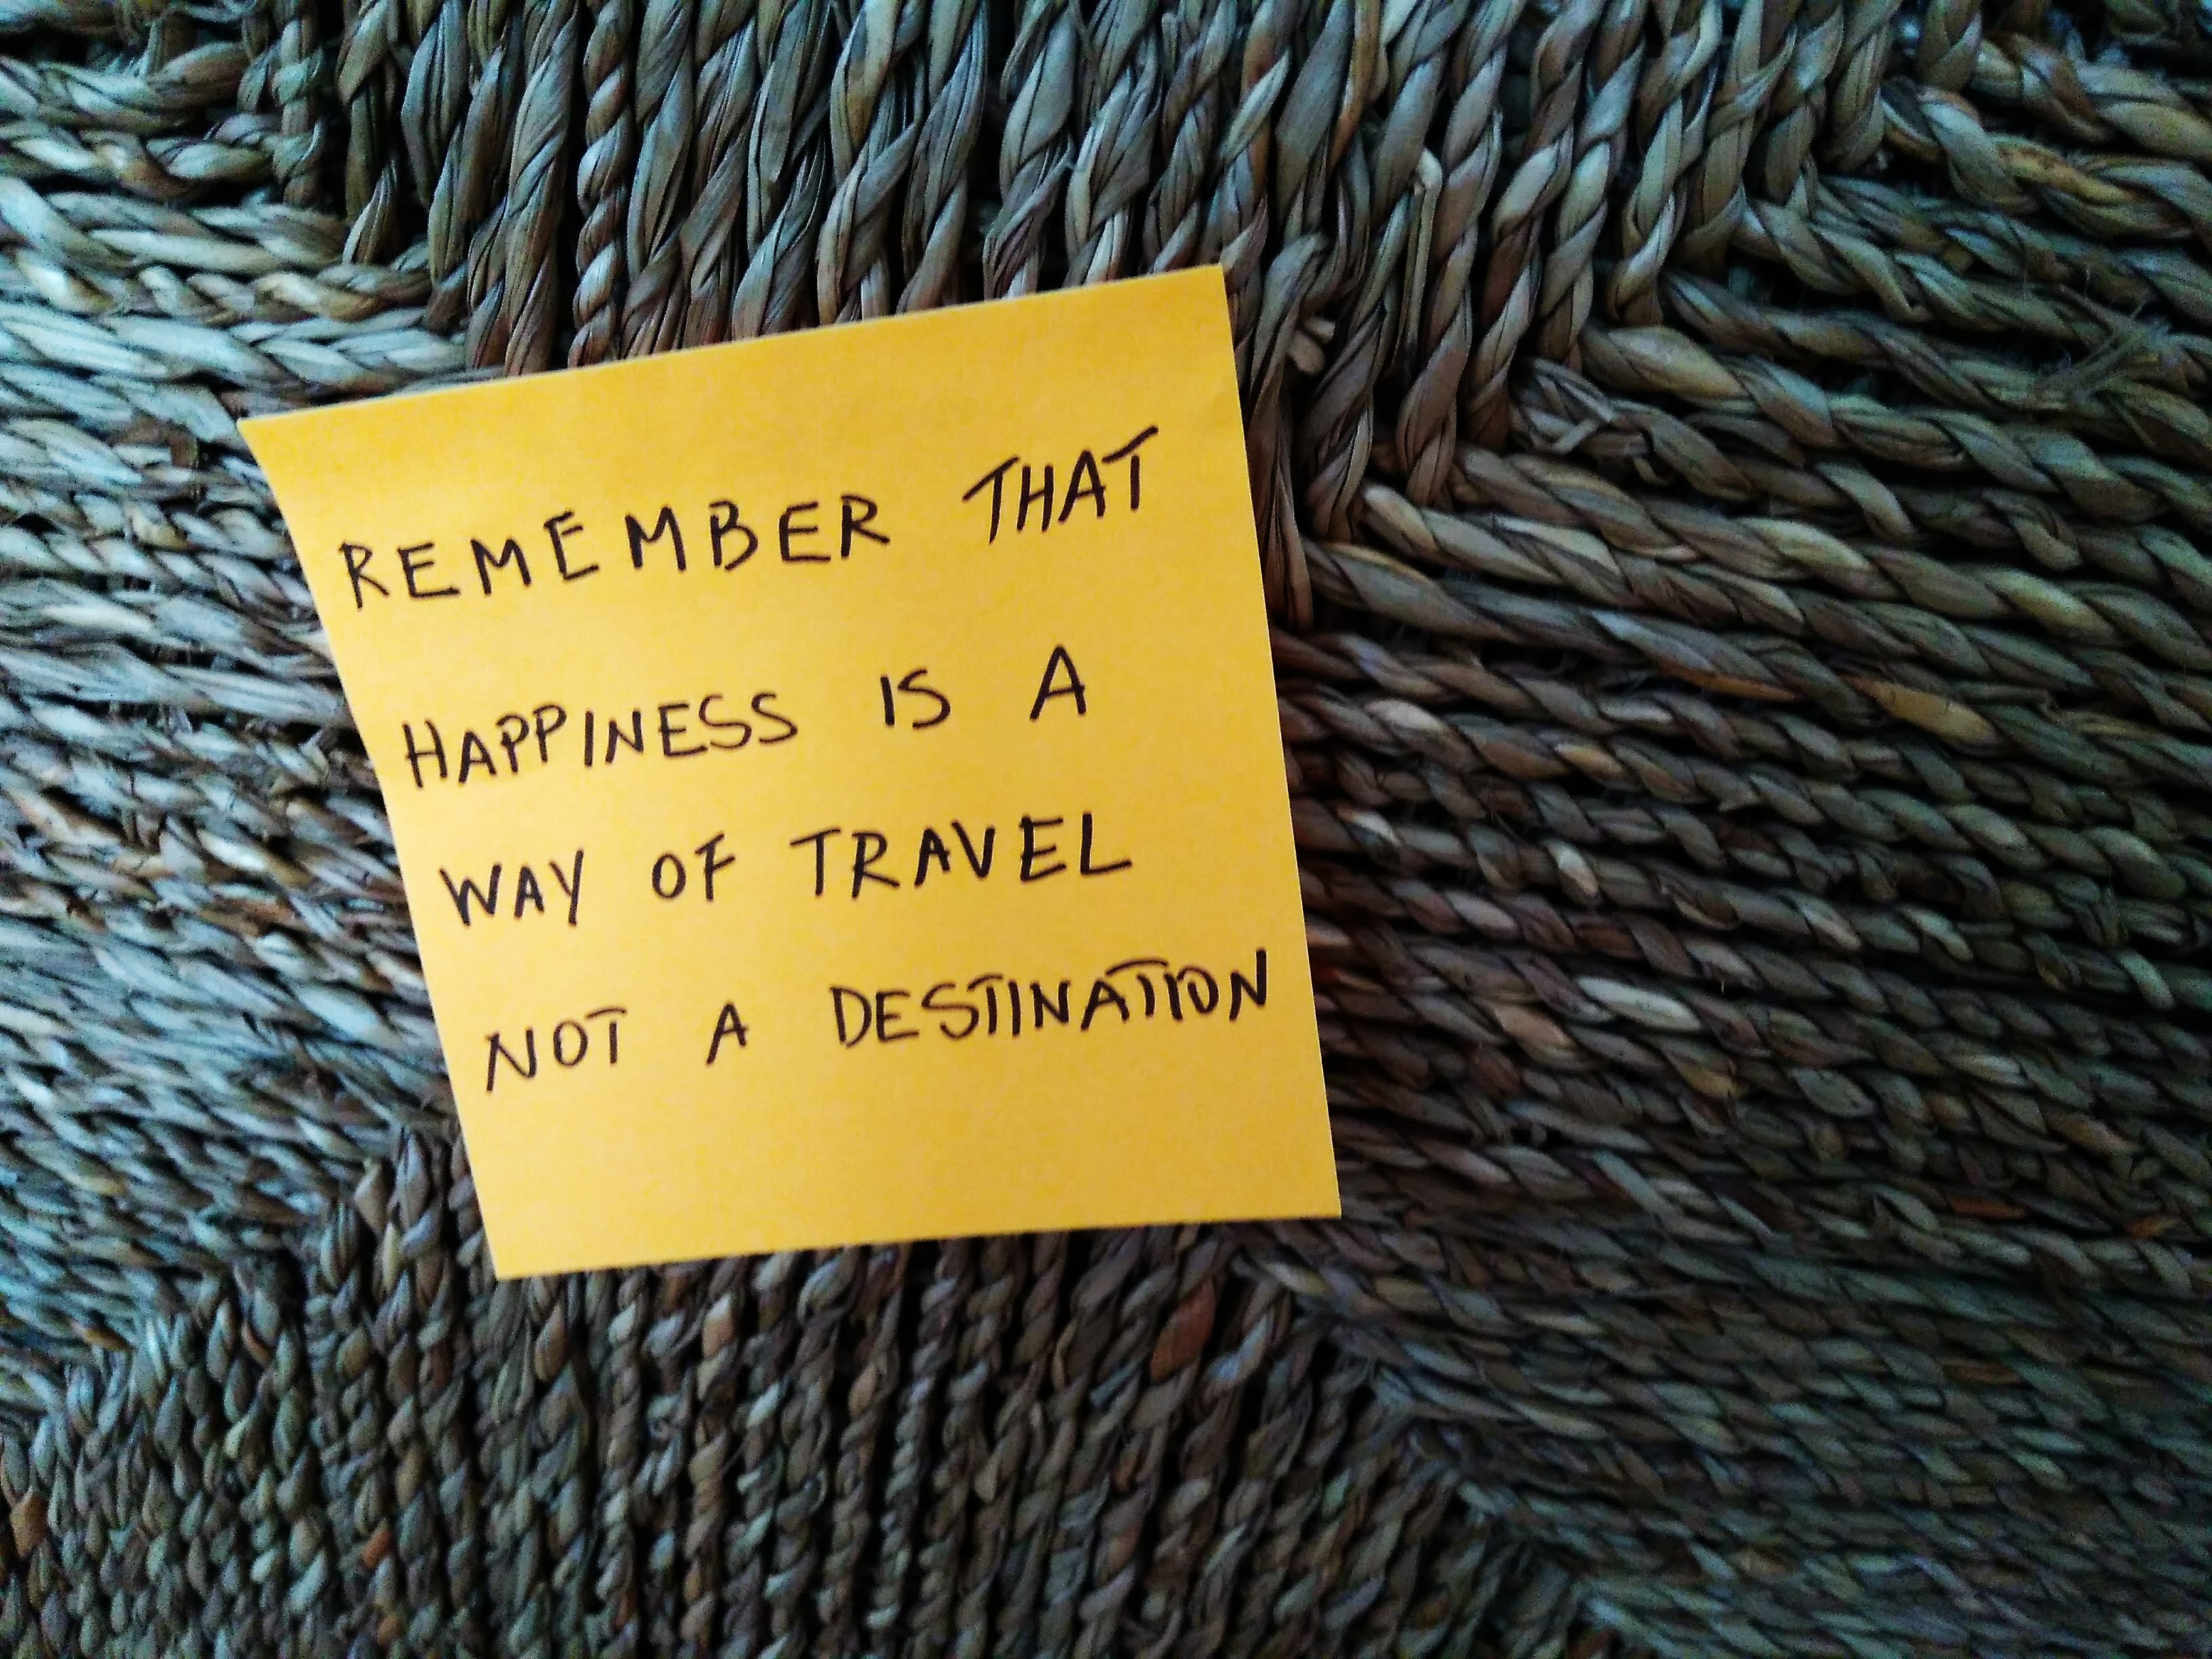 REMEMBER THAT
HAPPINESS IS A
WAY OF TRAVEL
NOT A DESTINATION